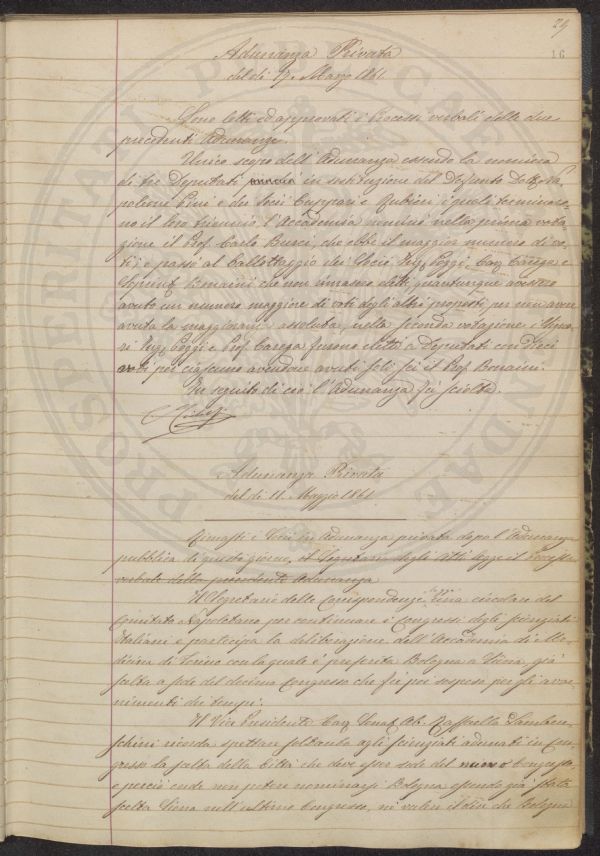 29
16
Adunanza Privata
del dì 17. Marzo 1861.
Sono letti ed approvati i Processi verbali delle due
precedenti Adunanze.
Unico scopo dell'Adunanza essendo la nomina
di tre Deputati in sostituzione del Defunto Dott. Na-
poleone Pini e dei Socii Gasparri e Rubieri i quali terminaro-
no il loro triennio, l'Accademia renduti nella prima vota-
zione il Prof. Carlo Burci, che ebbe il maggior numero di vo-
ti; e passò al ballottaggio dei Socii Poggi, Cav. Carega e
Bonaini che non rimasero eletti quantunque avessero
avuto un numero maggiore di voti degli altri proposti, per non aver
avuta la maggioranza assoluta, nella seconda votazione i Signo-
ri Poggi e Prof. Carega furono eletti a Deputati con dieci
voti per ciascuno avendone avuti soli sei il Prof. Bonaini.
In seguito di ciò l'Adunanza fu sciolta.
Adunanza Privata
del dì 11. Maggio 1861
Rimasti i Socii in Adunanza privata dopo l'Adunanza
pubblica di questo giorno, il Segretario degli Atti legge il Processo
verbale della precedente Adunanza
Il Segretario delle Corrispondenze una circolare del
Comitato Napoletano per continuare i Congressi degli scienziati
Italiani e partecipa la deliberazione dell'Accademia di Me-
dicina di Torino con la quale è preferita Bologna a Siena, già
scelta a sede del decimo Congresso che fu poi sospeso per gli avve-
nimenti dei tempi.
Il Vice Presidente Cav. Senat. Ab. Raffaello Lambru-
schini ricorda spettare soltanto agli scienziati adunati in Con-
gresso la scelta della Città che deve esser sede del nuovo Congresso,
e perciò onde non potere nominarsi Bologna essendo già stata
scelta Siena nell'ultimo Congresso, né valere il dire che Bologna